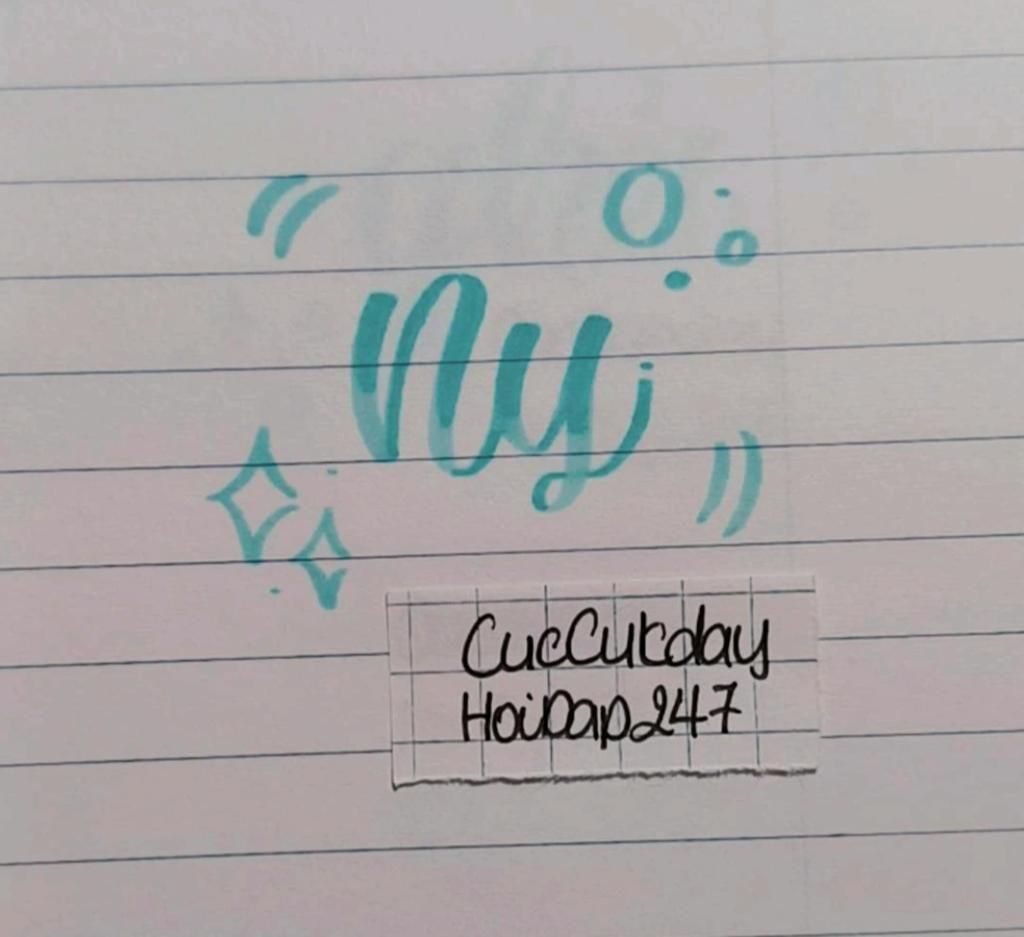 Ny
CucCutdday
HoiDap247